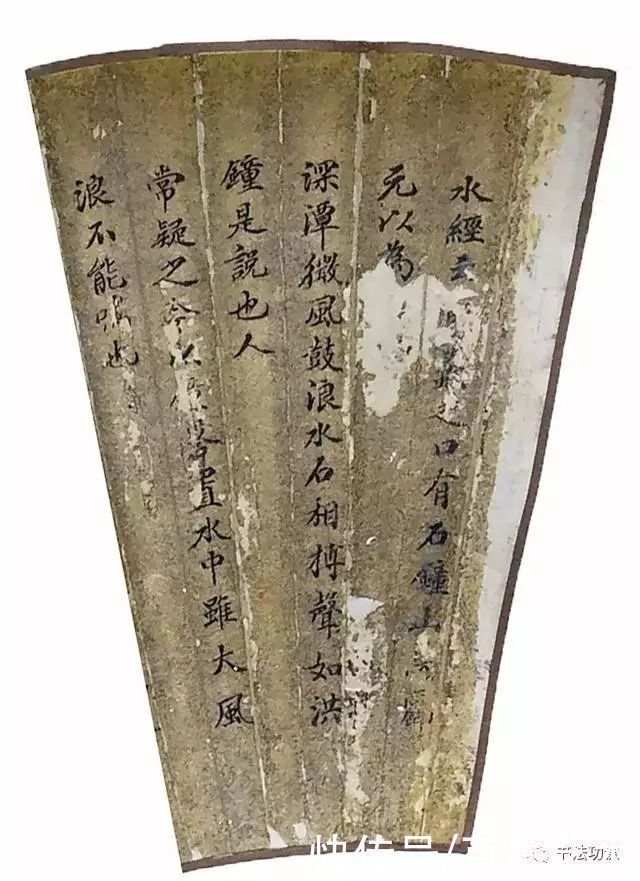 水經云之口有石鐘山酈
元以為
深潭微風鼓浪水石相搏聲如洪
鐘是說也人
常疑之今以磬置水中雖大風
浪不能鳴也
快传号/
书法功